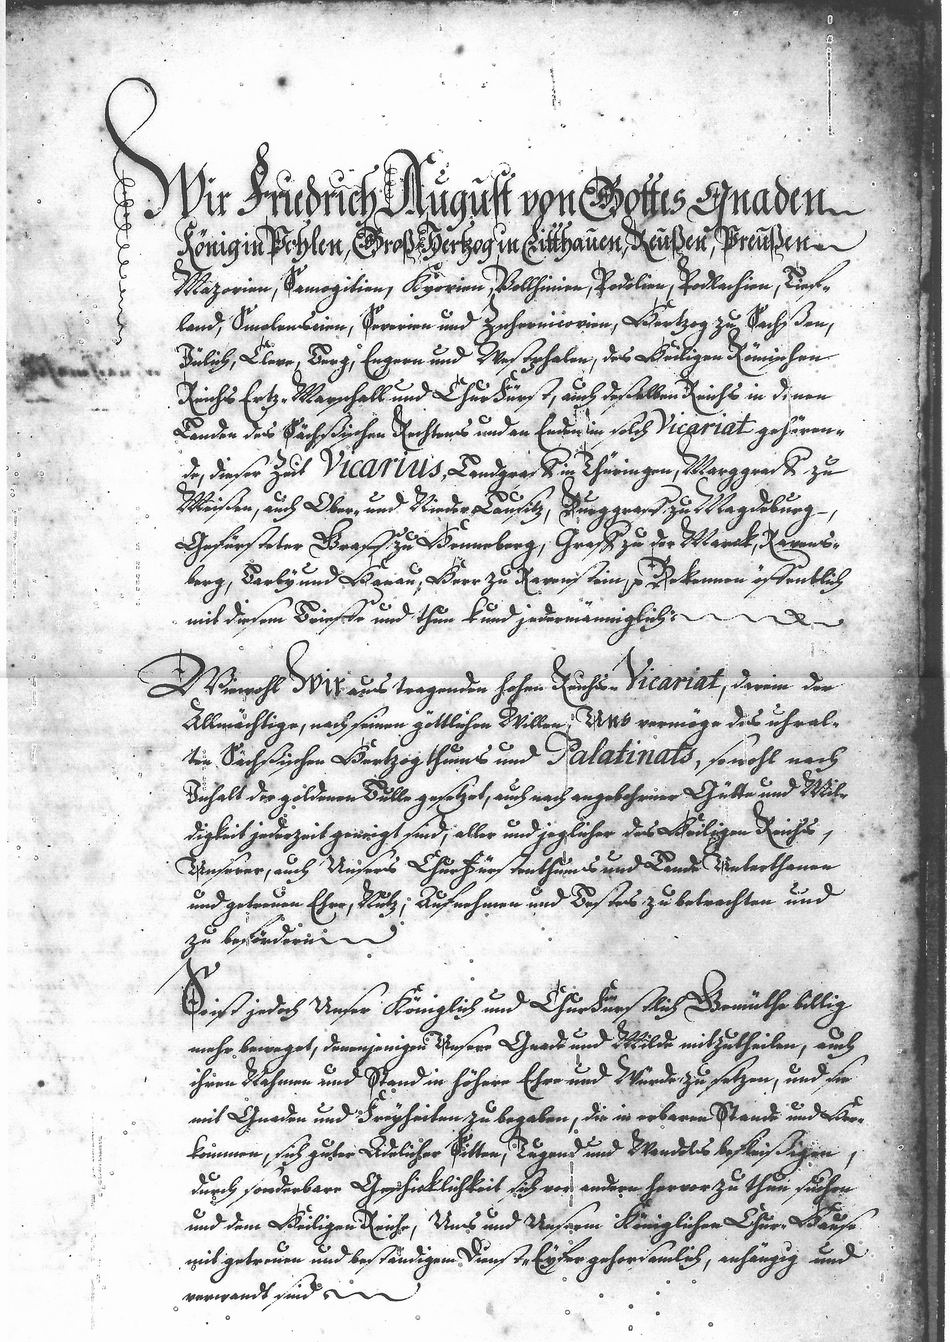 Wir Friedrich August von Gottes Gnaden
König in Pohlen, Groß Hertzog in Litthauen, Reußen, Preußen
Mazovien, Samogitien, Kyovien, Vollhinien, Podolien, Podlachien, Lief-
land, Smolenscien, Severien und Zschernicovien, Hertzog zu Sachßen,
Jülich, Cleve, Berg, Engern und Westphalen, des Heiligen Römischen
Reichs Ertz-Marschall und ChurFürst, auch deßelben Reichs in denen
Landen des Sächßischen Rechtens und an Enden in solch Vicariat gehören-
de, dieser Zeit Vicarius, Landgraff in Thüringen, Marggraff zu
Meißen, auch Ober- und Nieder Lausitz, Burggraff zu Magdeburg,
Gefürsteter Graff zu Henneberg, Graff zu der Marck, Ravens-
berg, Barby und Hanau, Herr zu Ravenstein, p. Bekennen öffentlich
mit diesem Brieffe und thun kund jedermänniglich:
Wiewohl Wir aus tragenden hohen Reichs-Vicariat, darein der
Allmächtige, nach seinem göttlichen Willen, Uns vermöge des uhral-
ten Sächßischen Hertzogthums und Palatinats, sowohl nach
Inhalt der göldenen Bulle gesetzet, auch nach angebohrner Gütte und Mil-
digkeit jederzeit geneigt sind, aller und jeglicher des Heiligen Reichs,
Unserer, auch Unsers ChurFürstenthums und Lande Unterthanen
und getreuen Ehre, Nutz, Aufnehmen und Bestes zu betrachten und
zu befördern;
So ist jedoch Unser Königlich und ChurFürstlich Gemüthe billig
mehr beweget, denenjenigen Unsere Gnade und Milde mitzutheilen, auch
ihren Nahmen und Stand in höhere Ehre und Würde zu setzen, und sie
mit Gnaden und Freyheiten zu begaben, die in erbarem Stande und Her-
kommen, sich guter Adelicher Sitten, Tugend und Wandels befleißigen,
durch sonderbare Geschicklichkeit sich vor andern hervor zu thun suchen
und dem Heiligen Reiche, Uns und Unserm Königlichen Chur-Hause
mit getreuen und beständigem Dienst-Eyfer gehorsamlich, anhängig und
verwandt sind